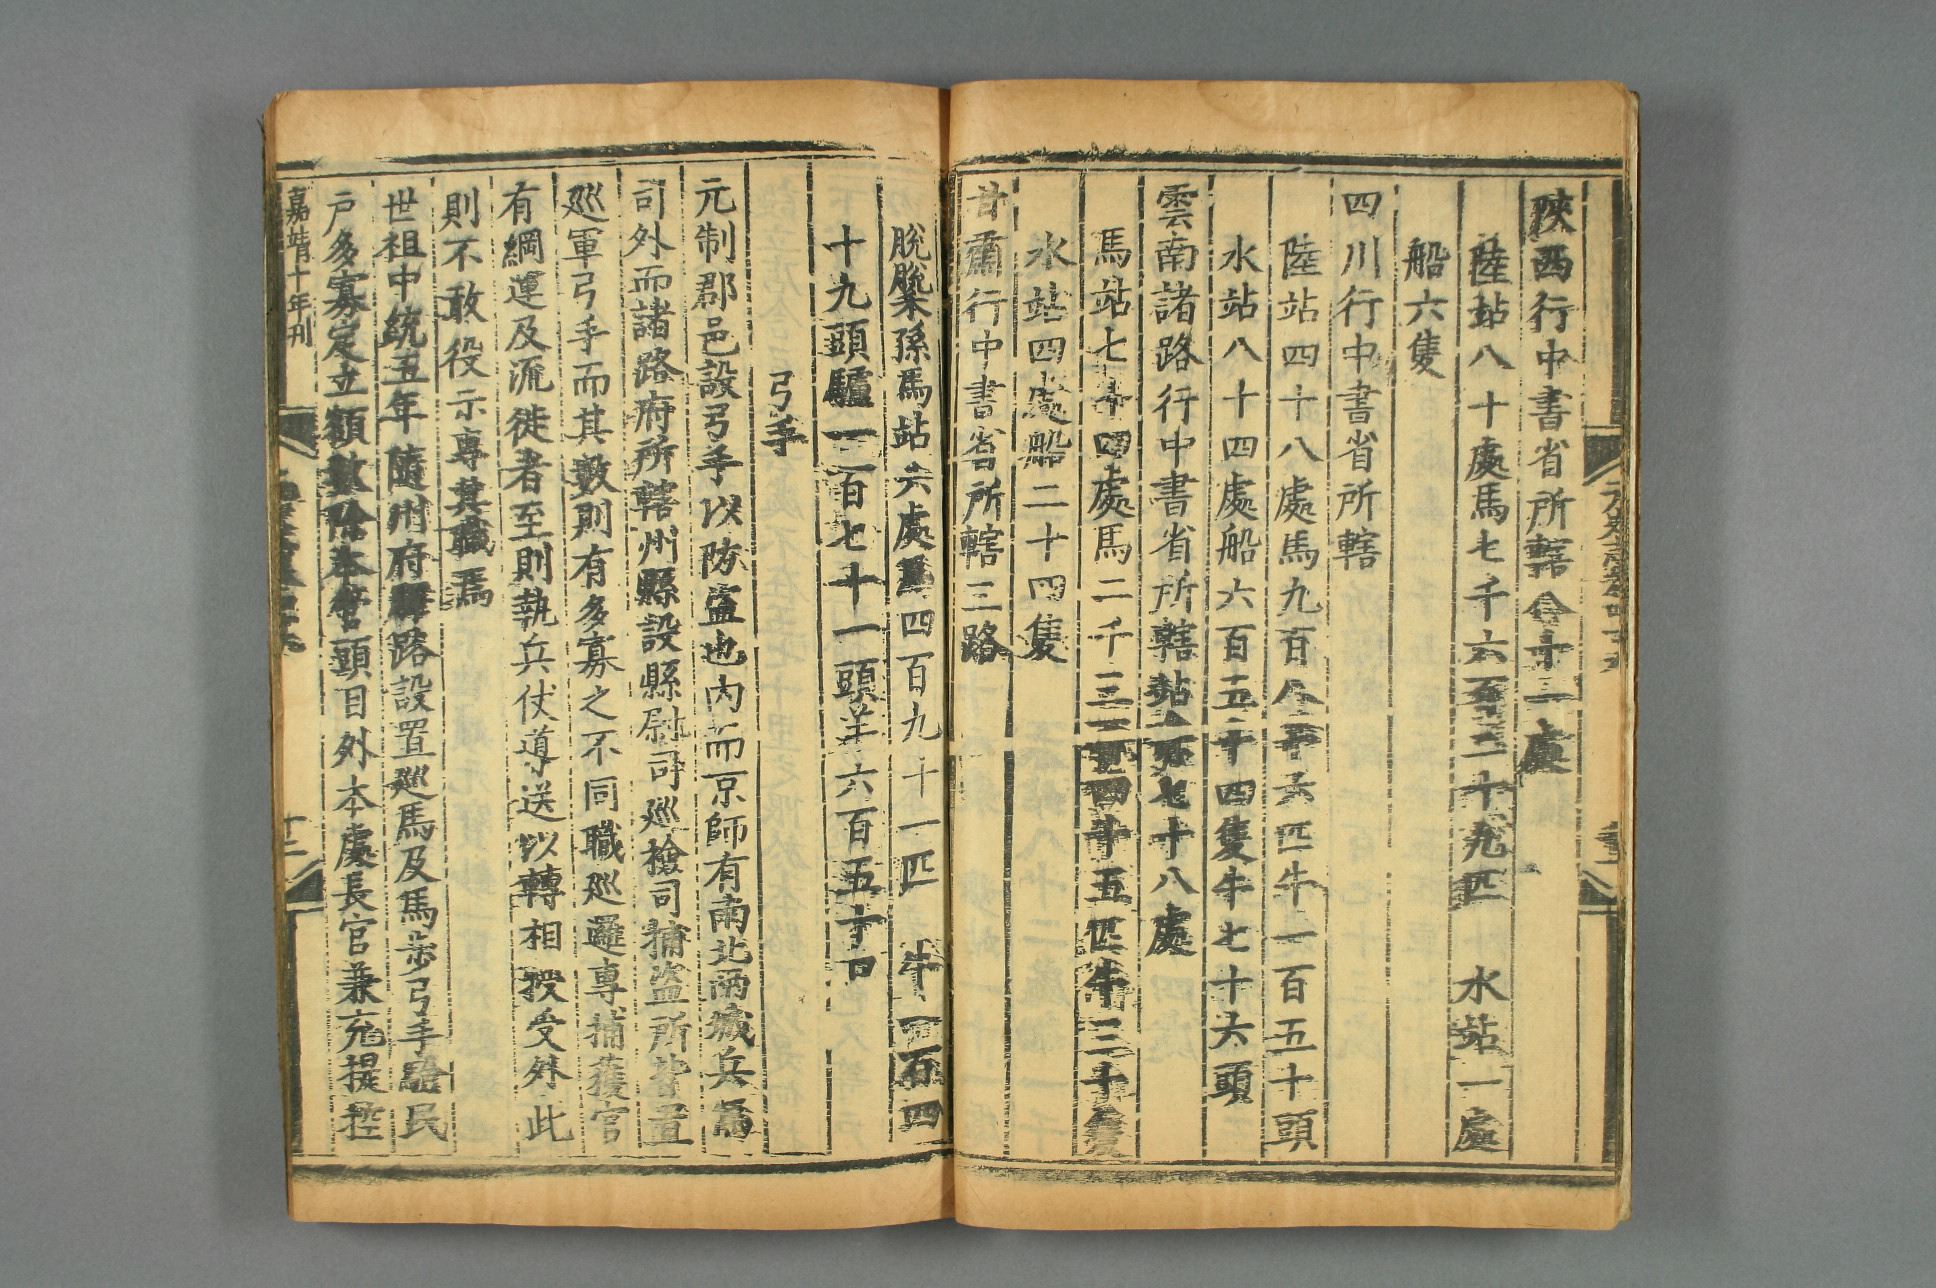 陝西行中書省所轄八十一處
陸站八十處馬七千六百二十九匹 水站一處
船六隻
四川行中書省所轄
陸站四十八處馬九百八十六匹牛一百五十頭
水站八十四處船六百五十四隻牛七十六頭
雲南諸路行中書省所轄站七十八處
馬站七十四處馬二千三百四十五匹牛三十隻
水站四處船二十四隻
甘肅行中書省所轄三路
脫脫禾孫馬站六處馬四百九十一匹 牛一百四
十九頭驢一百七十一頭羊六百五十口
弓手
元制郡邑設弓手以防盜也內而京師有南北兩城兵馬
司外而諸路府所轄州縣設縣尉司巡檢司捕盜所皆置
巡軍弓手而其數則有多寡之不同職巡邏專捕獲官
有綱運及流徙者至則執兵仗導送以轉相授受外此
則不敢役示專其職焉
世祖中統五年隨州府驛路設置巡馬及馬步弓手驗民
戶多寡定立額數除本管頭目外本處長官兼充提控
嘉靖十年刊
十二